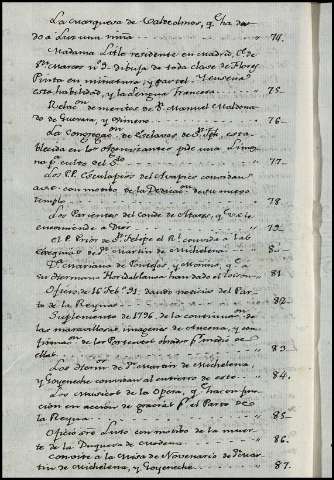 La Marquesa de Valdeolmos, q.e ha da-
do a Luz una niña " 74.
Madama Litle residente en Madrid, C.e de
S.n Marcos n.o 9. dibuja de toda clase de Flores
Pinta en miniatura, y pastel. Y enseña
esta habilidad, y la Lengua Francesa " 75.
Relac.on de meritos de D.n Manuel Maldona-
do de Guevara, y Romero " 76.
La Congregac.on de Esclavos de S.n Jph, esta-
blecida en los Agonizantes pide una Limos-
na p.a culto del S.to " 77.
Los PP. Escolapios del Avapies convidan
con motivo de la Dedicac.on de su nuevo
templo " 78.
Los Parientes del Conde de Atares, q.e se le
encomiende a Dios " 79.
El P. Prior de S.n Felipe el R.l convida a las
Exequias de D.n Martin de Michelena " 8
D.a Mariana de Pontejos, y Moñino, y
su Hermano Floridablanca han dado el " 81.
Oficio de 16 Feb.o 91. dando noticia del Par-
to de la Reyna " 82.
Suplemento de 1796. de la continuac.on de
las maravillosas imagenes de Ancona, y con-
firmac.on de los Portentos obrados p.r medio de
ellas " 83.
Los de D.n Martin de Michelena,
y Goyeneche convidan al entierro de este " 84.
Los Musicos de la Opera, q.e hacen fun-
cion en accion de gracias p.r el Parto de
la Reyna " 85.
Oficio s/re Luto con motivo de la muer-
te de la Duquesa de Modena " 86.
Convite a la Misa de Novenario de Mar-
tin de Michelena, y Goyeneche " 87.